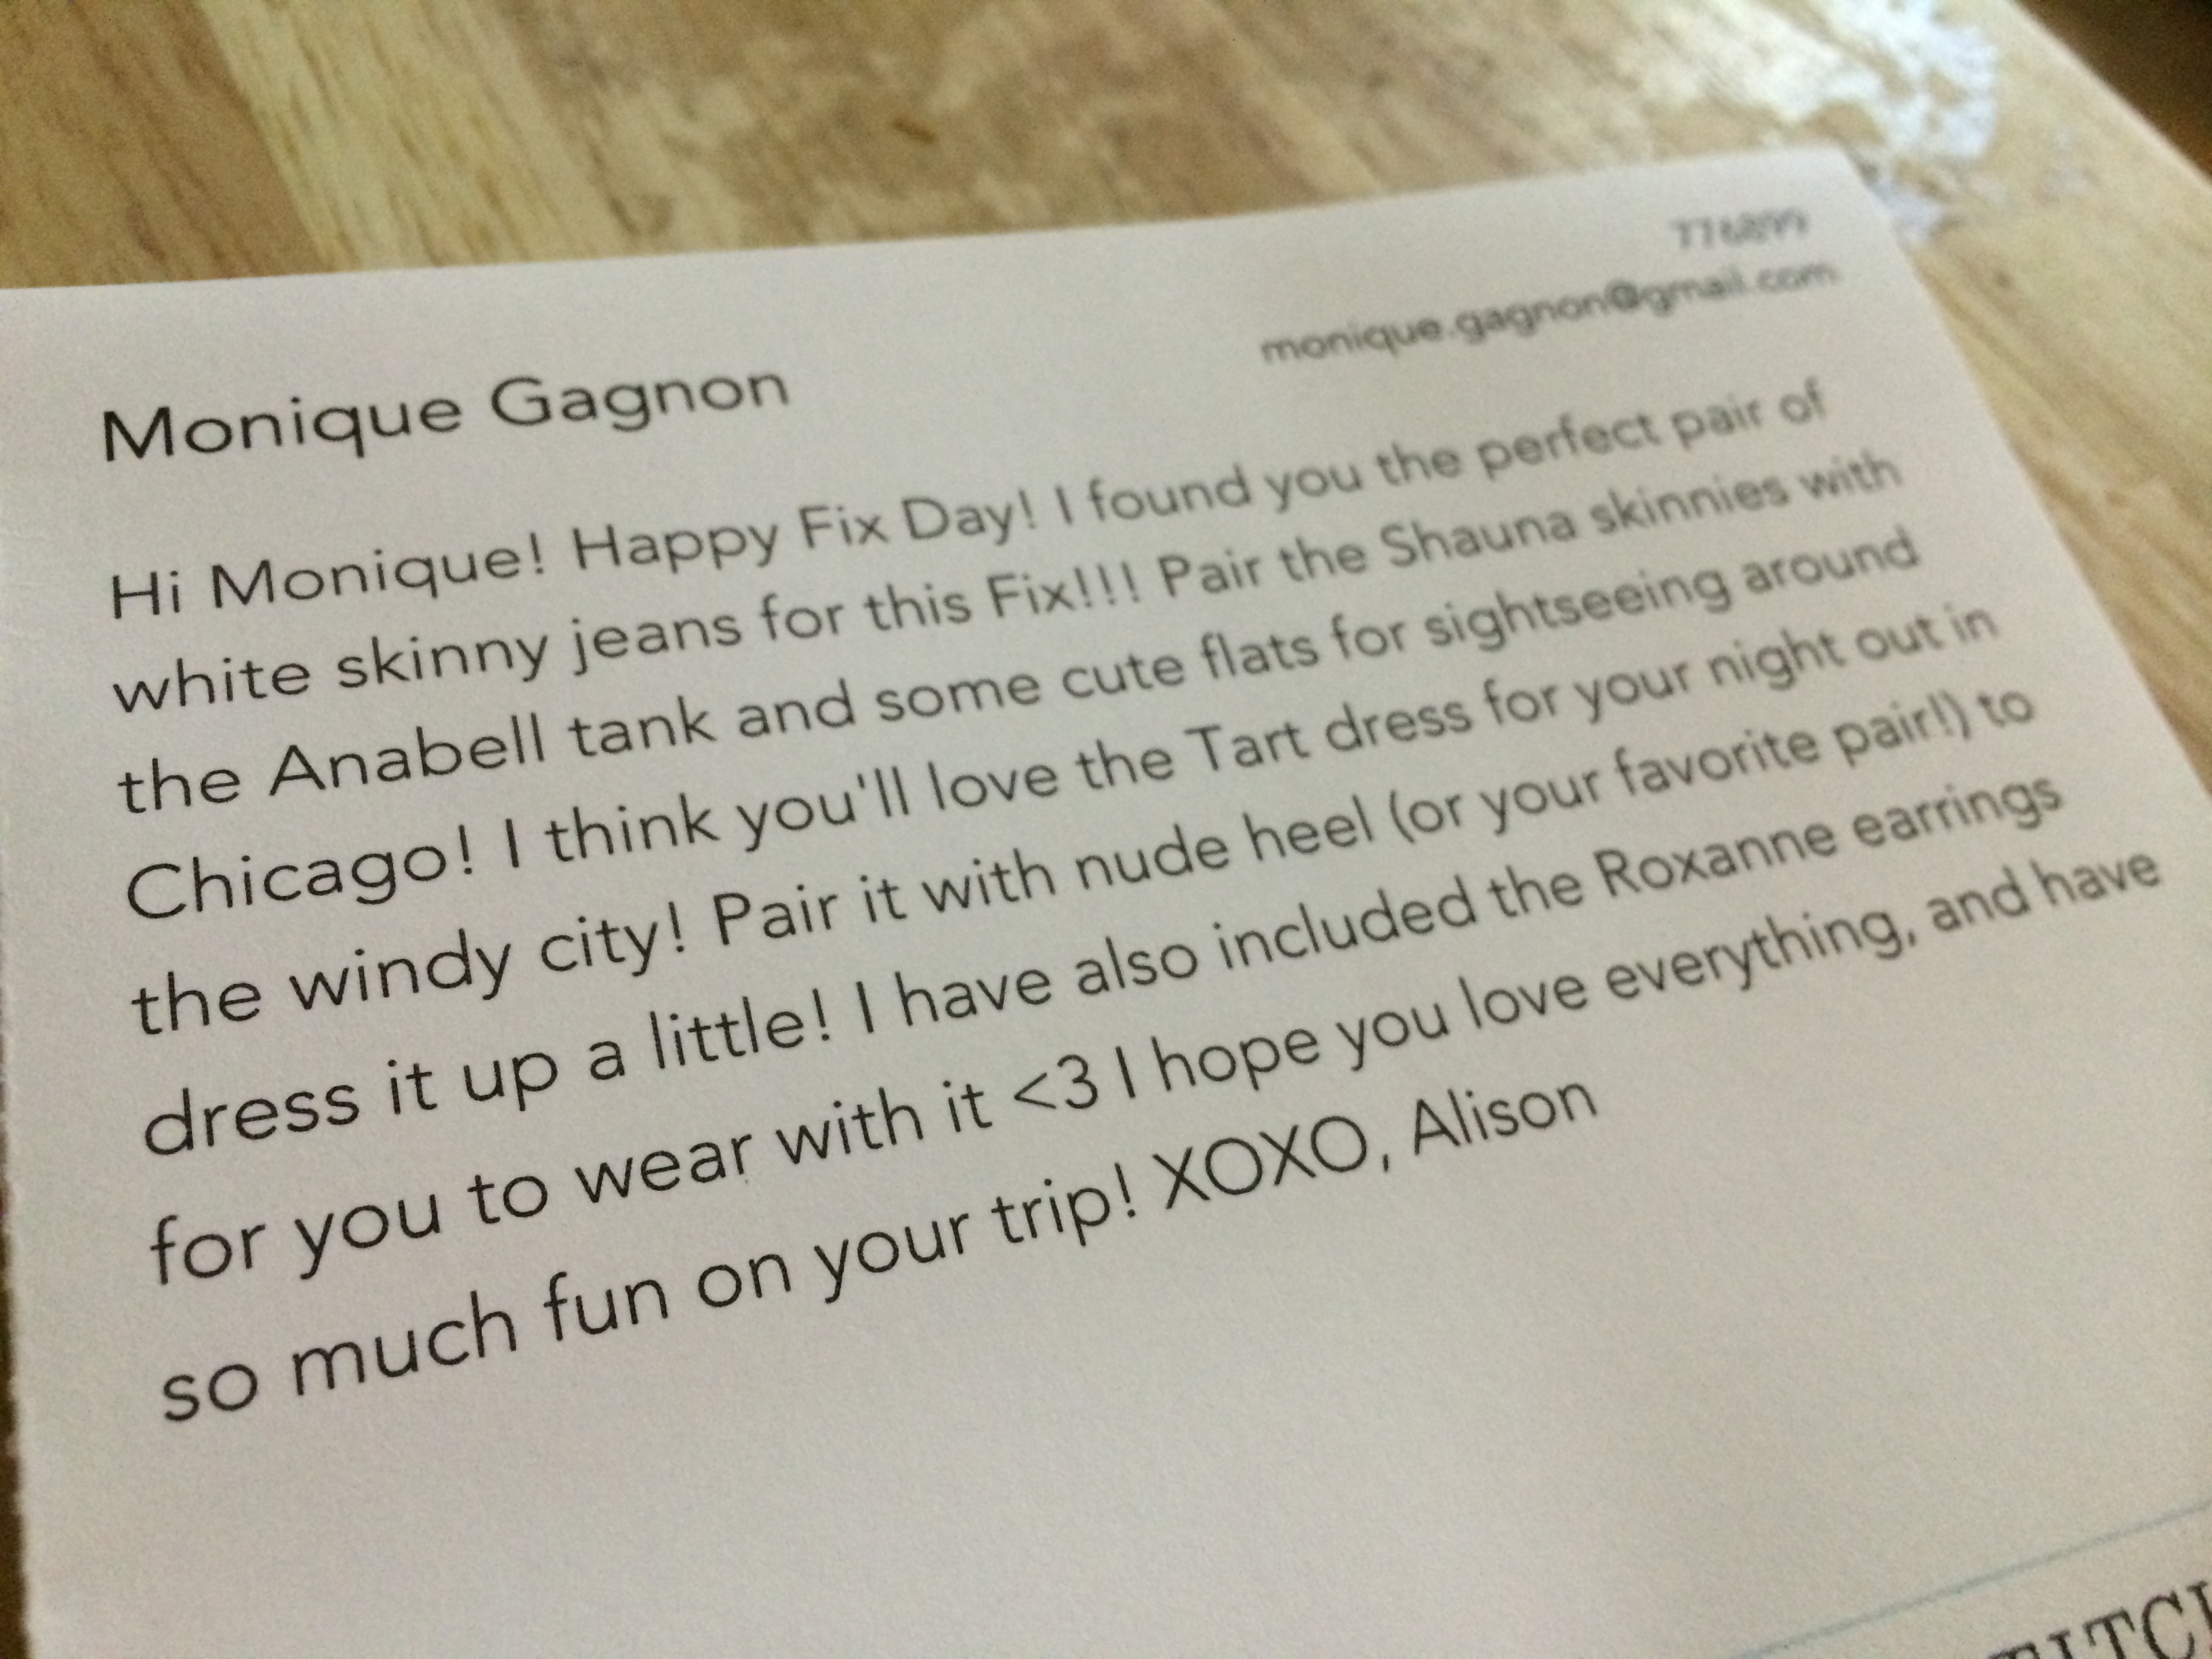 776899
monique.gagnon@gmail.com
Monique Gagnon
Hi Monique! Happy Fix Day! I found you the perfect pair of
white skinny jeans for this Fix!!! Pair the Shauna skinnies with
the Anabell tank and some cute flats for sightseeing around
Chicago! I think you'll love the Tart dress for your night out in
the windy city! Pair it with nude heel (or your favorite pair!) to
dress it up a little! I have also included the Roxanne earrings
for you to wear with it <3 I hope you love everything, and have
so much fun on your trip! XOXO, Alison